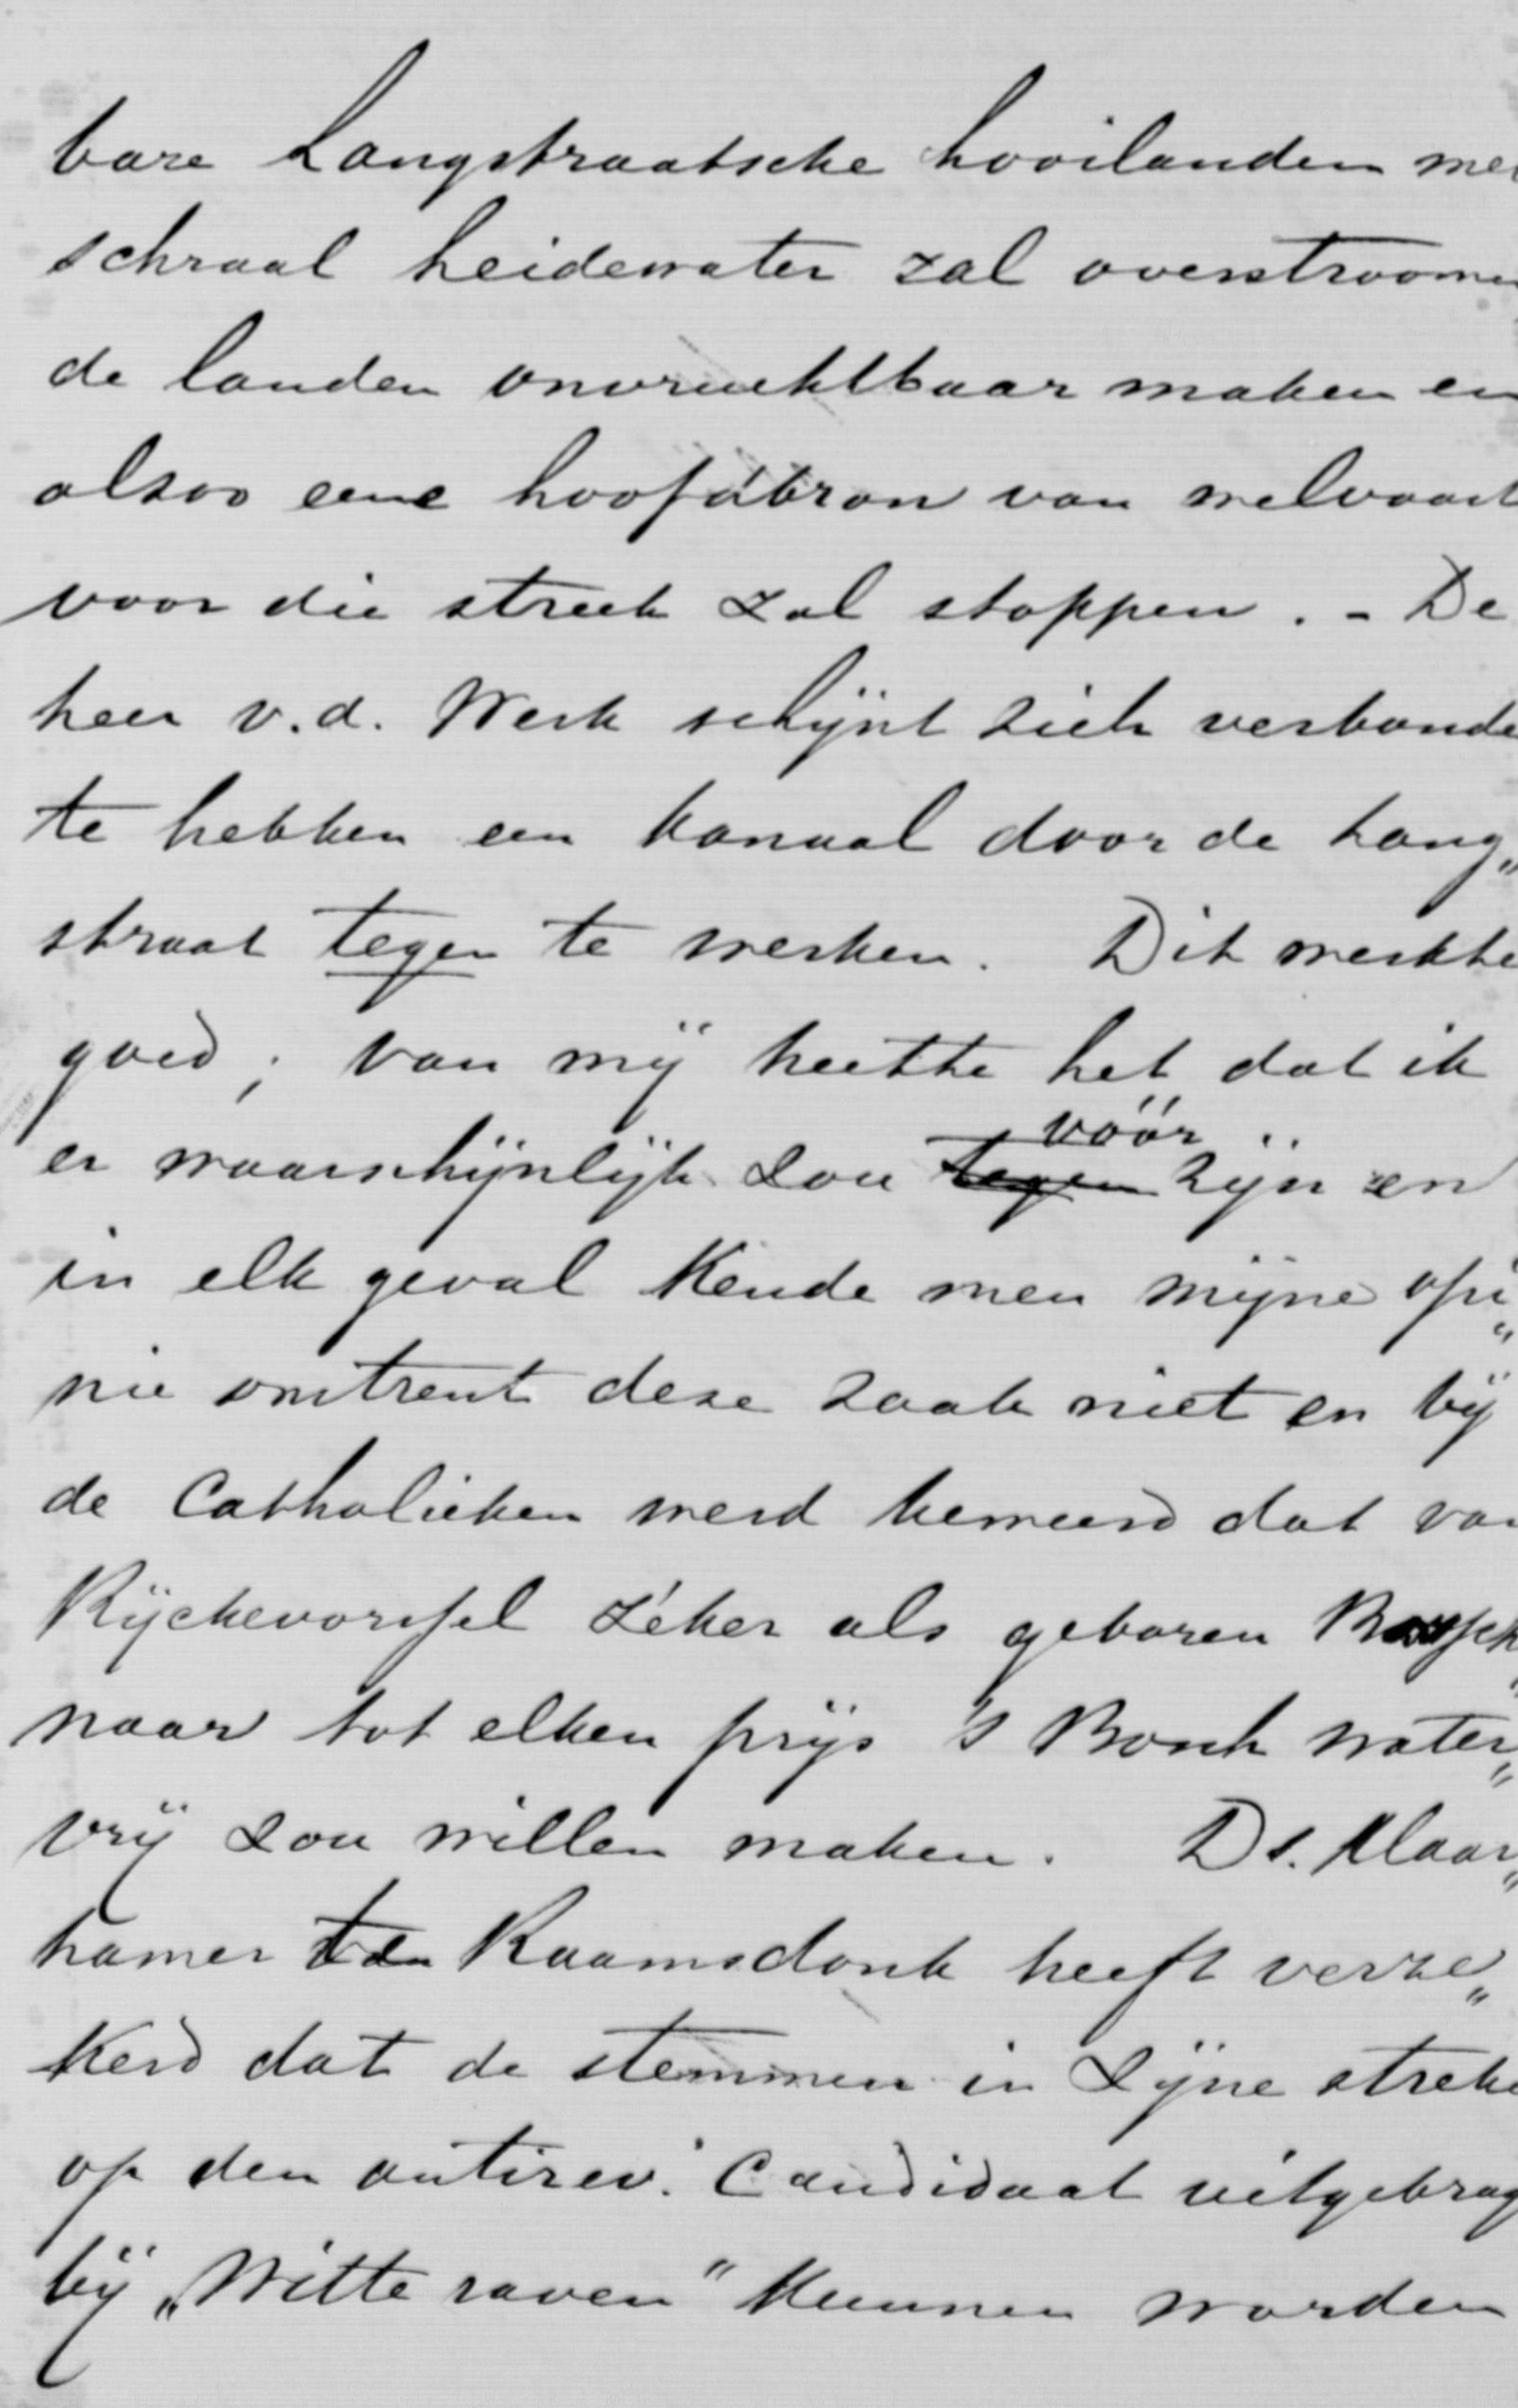 bare Langstraatsche hooilanden met
schraal heidewater zal overstroomen
de landen onvruchtbaar maken en
alzoo eene hoofdbron van welvaart
voor die streek zal stoppen. - De
heer v.d. Werk schijnt zich verbonde
te hebben een kanaal door de Lang„
straat tegen te werken. Dit werkte
goed; van mij heette het dat ik
er waarschijnlijk zou tegen vóór zijn en
in elk geval kende men mijne opi„
nie omtrent deze zaak niet en bij
de Catholieken werd beweerd dat van
Rijckevorsel zéker als geboren Bossche„
naar tot elken prijs 's Bosch water„
vrij zou willen maken. Ds. Klaar„
hamer te Raamsdonk heeft verze„
kerd dat de stemmen in zijne streke
op den antirev. Candidaat uitgebrag
bij „Witte raven" kunnen worden